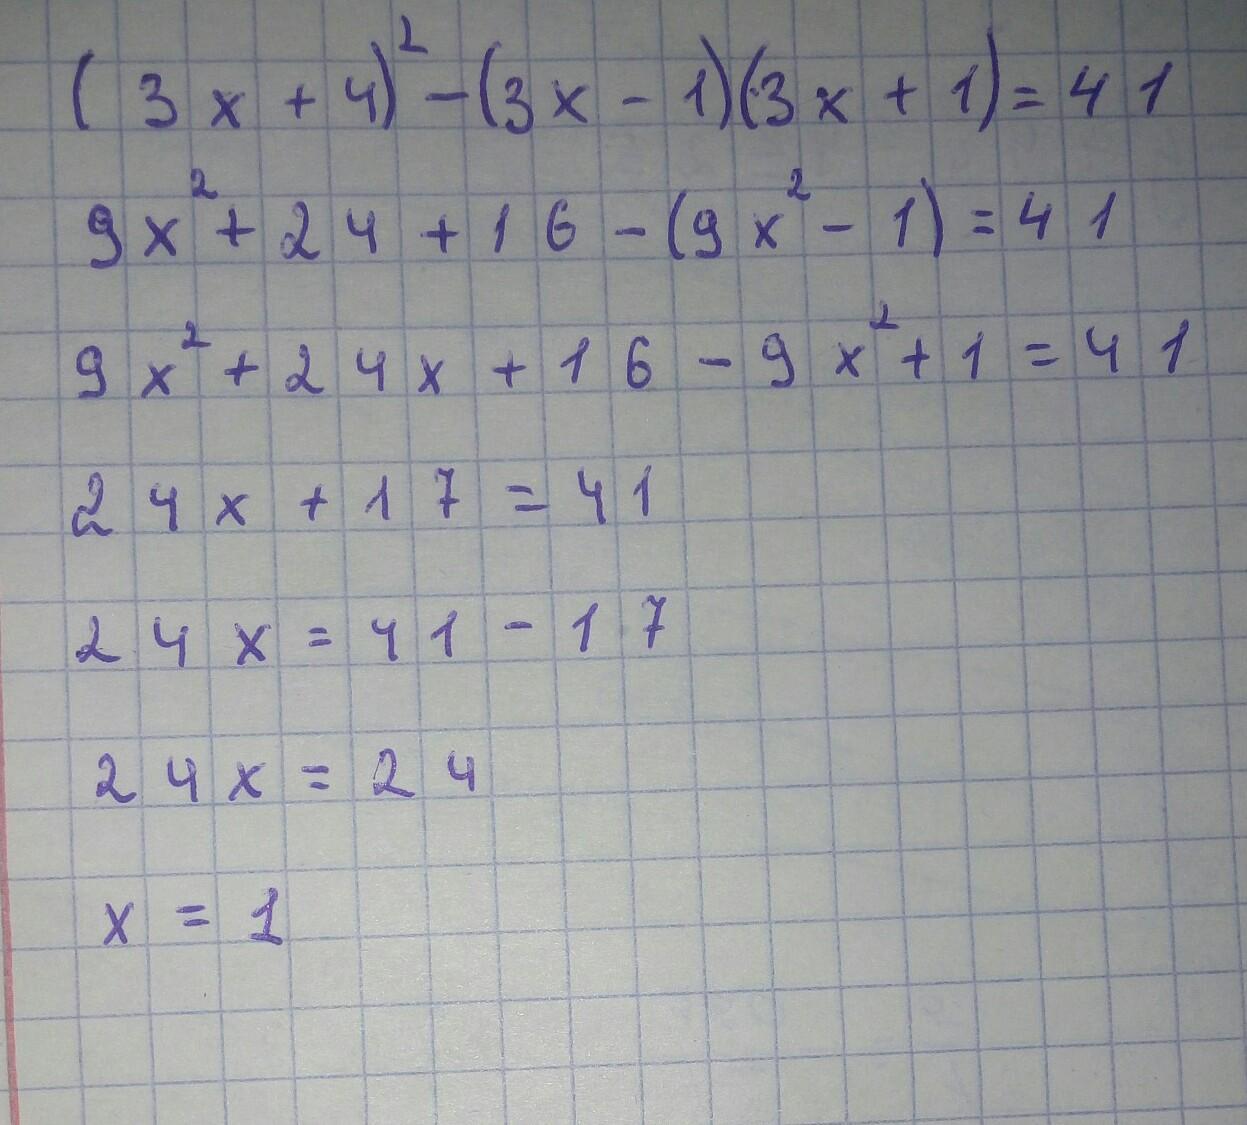 (3x+4)²-(3x-1)(3x+1)=41
9x²+24+16-(9x²-1)=41
9x²+24x+16-9x²+1=41
24x+17=41
24x=41-17
24x=24
x=1